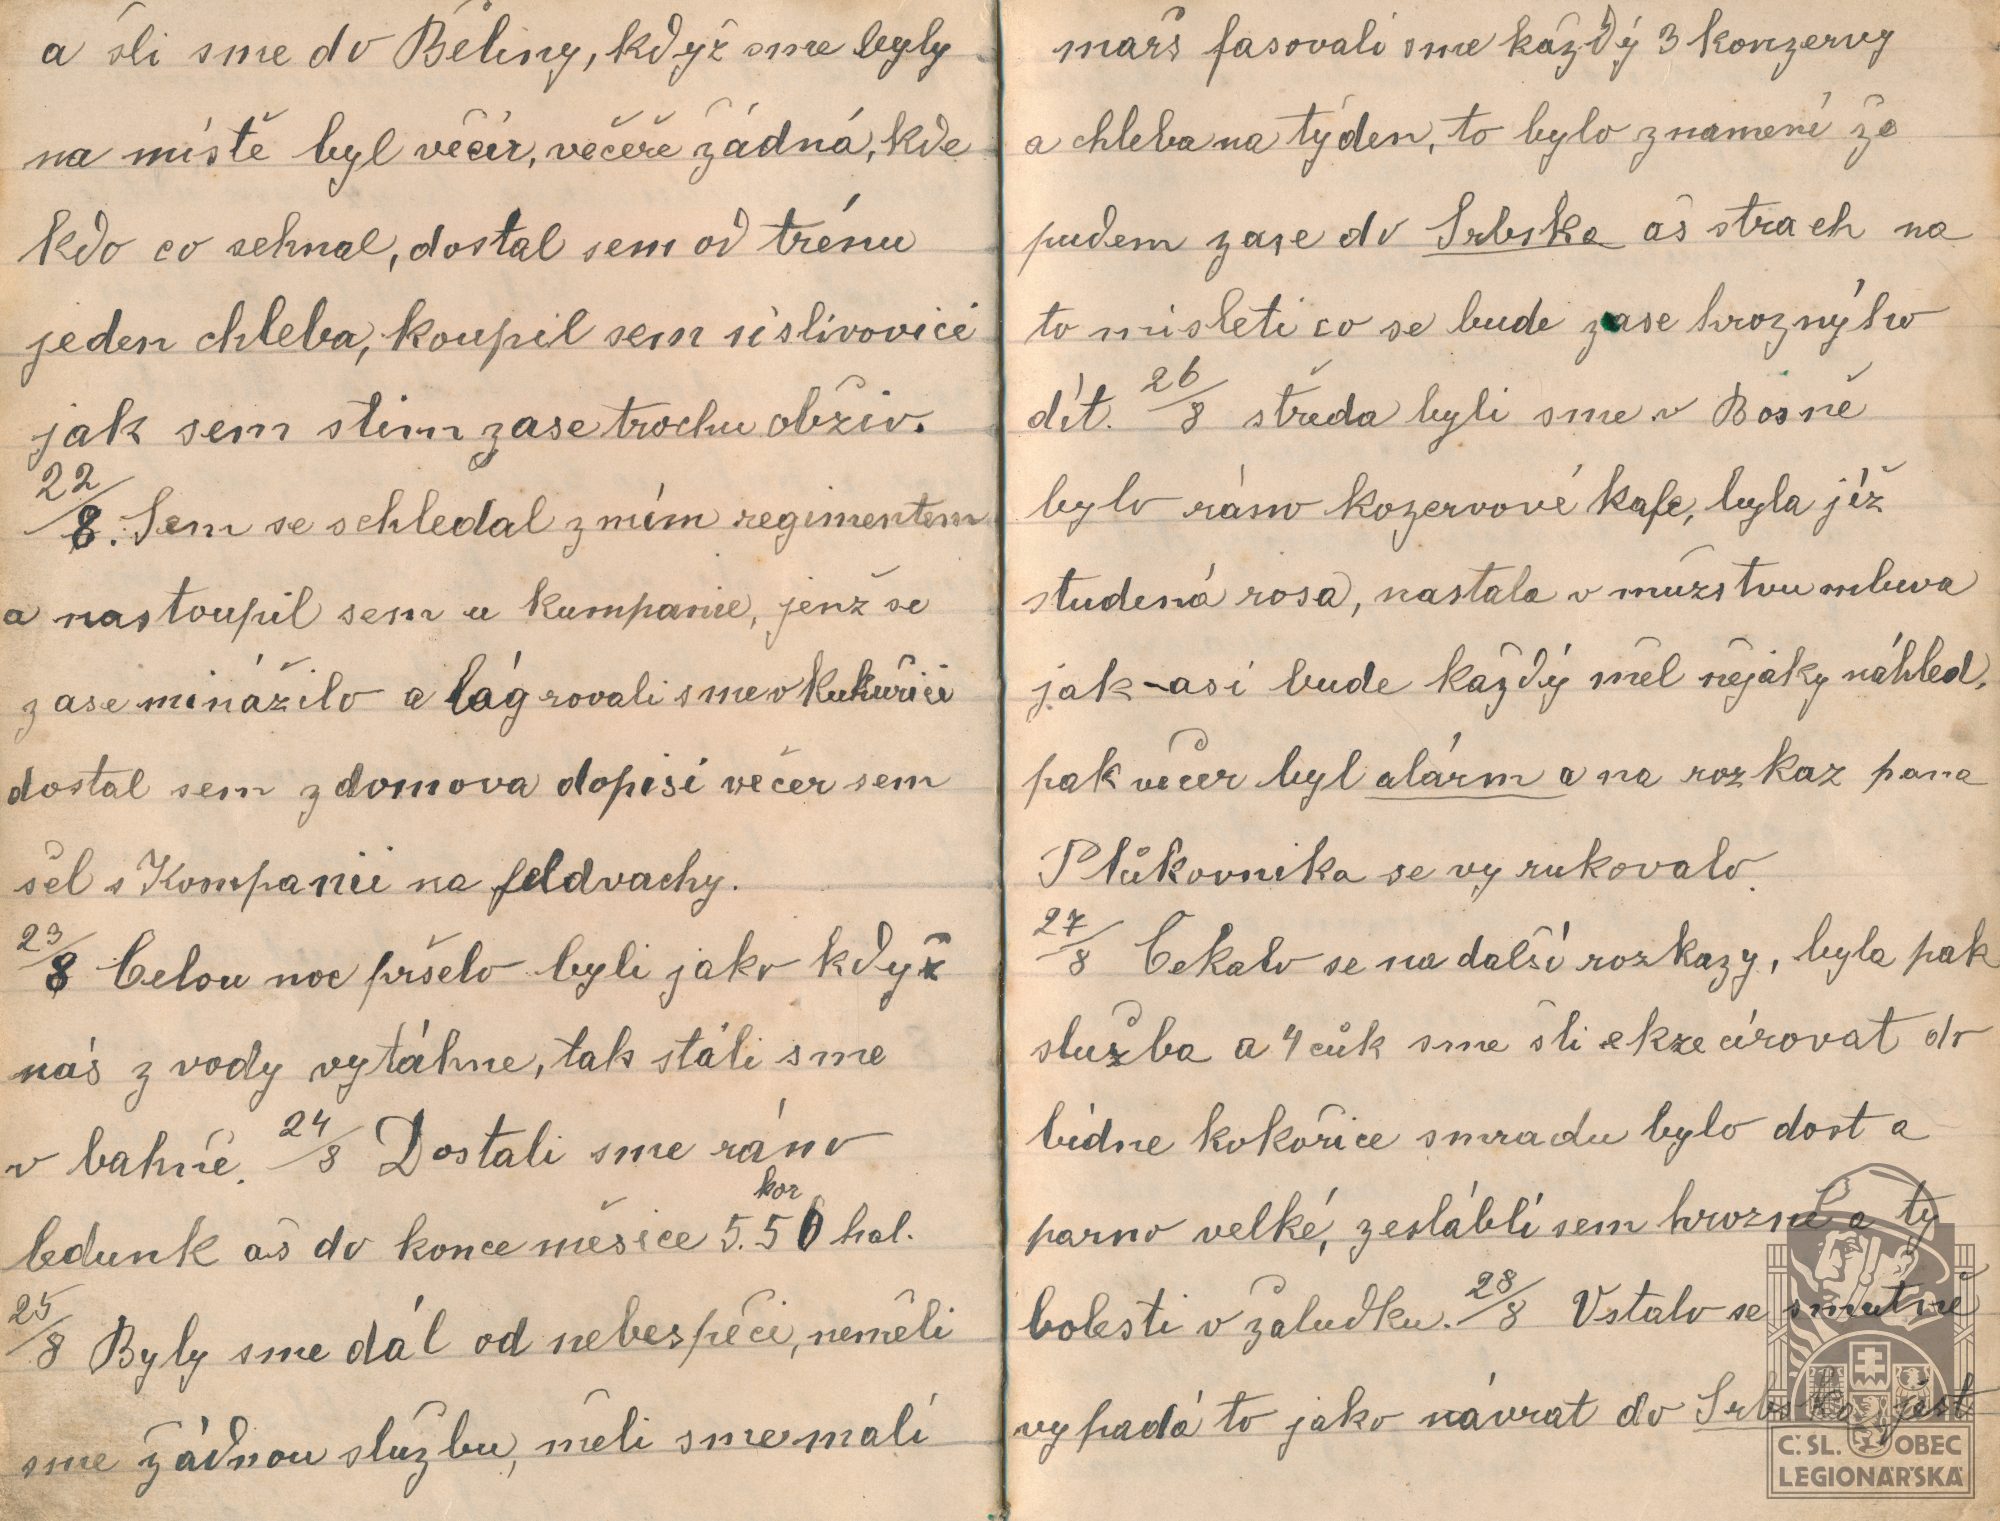 a šli sme do Běliny, když sme byly
na místě byl věčír, věčeře žádná, kde
kdo co sehnal, dostal sem od trénu
jeden chleba, koupil sem si slivovici
jak sem stim zase trochu obživ.
22/8. Sem se schledal z mím regimentem
a nastoupil sem u kumpanie, jenž se
zase minážilo a lágrovali sme v kukuřici
dostal sem z domova dopisi večer sem
šel s Kompanii na feldvachy.
23/8 Celou noc pršelo byli jako když
nás z vody vytáhne, tak stáli sme
v bahně. 24/8 Dostali sme ráno
kor
ledunk aš do konce měsice 5.50 hal.
25/8 Byly sme dál od nebespěči, neměli
sme žádnou službu, měli sme malí
marš fasovali sme každý 3 konzervy
a chleba na tyden, to bylo znameni že
pudem zase do Srbska aš strach na
to misleti co se bude zase hroznýho
dít. 26/8 středa byli sme v Bosně
bylo ráno kozervové kafe, byla jíž
studená rosa, nastala v mužstvu mluva
jak-asi bude každý měl nějaky náhled,
pak večer byl alárm a na rozkaz pana
Plůkovnika se vyrukovalo.
27/8 Čekalo se na další rozkazy, byla pak
služba a 4 cůk sme šli ekzecírovat do
bídne kokořice smradu bylo dost a
parno velké, zeslábli sem hrozně a ty
bolesti v žaludku. 28/8 Vstalo se smutně
vypadá to jako návrat do Srbska, jest
Č. SL. OBEC
LEGIONÁŘSKÁ